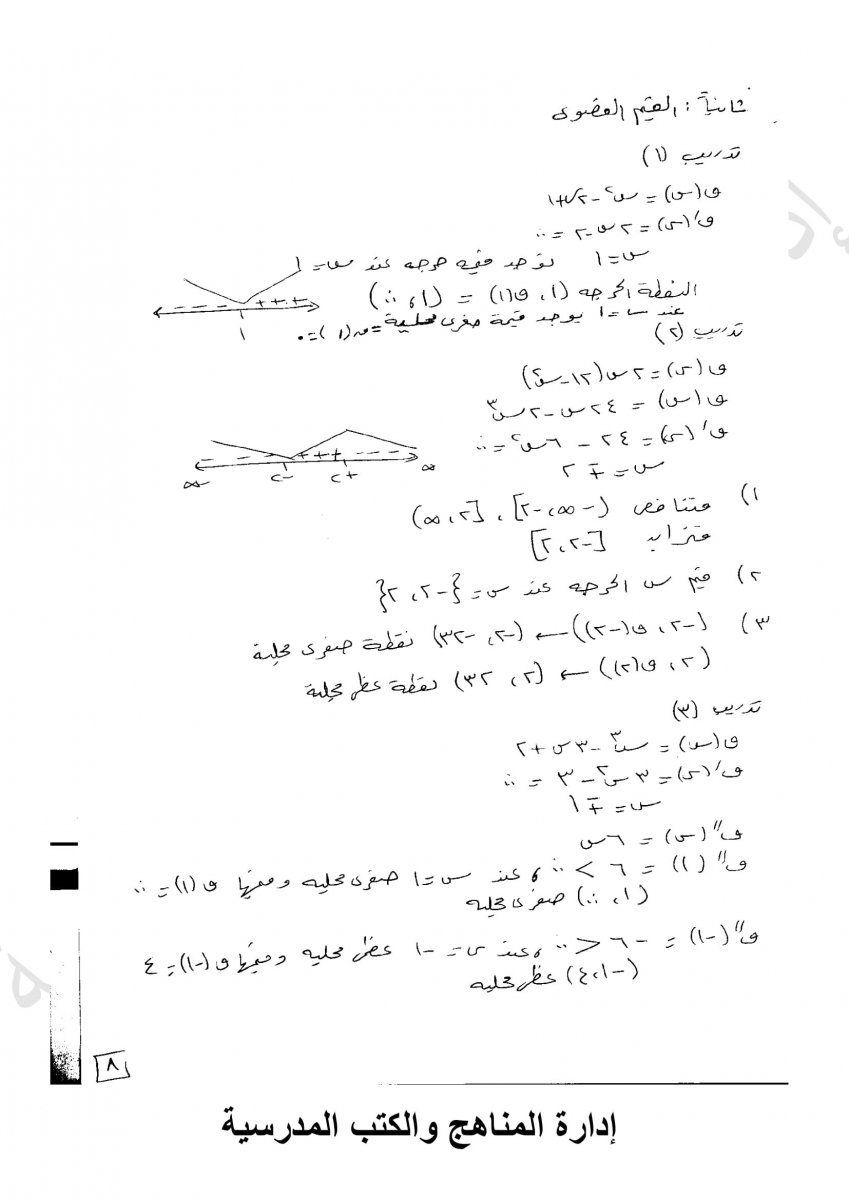 ثانياً : القيم القصوى
تدريب (١)
ق(س) = س٢ - ٢س + ١
ق/(س) = ٢س - ٢ = ٠
س = ١ توجد قيمة حرجه عند س = ١
النقطة الحرجه (١، ق(١)) = (١، ٠)
عند س = ١ يوجد قيمة صغرى محلية = ق(١) = ٠
- - - - + + +
١
تدريب (٢)
ق(س) = ٢س(١٢ - س٢)
ق(س) = ٢٤س - ٢س٣
ق/(س) = ٢٤ - ٦س٢ = ٠
س = ∓ ٢
- - - + + + - - -
-∞ -٢ +٢ ∞
١) متناقص (-∞، -٢] ، [٢، ∞)
متزايد [-٢، ٢]
٢) قيم س الحرجه عند س = {-٢، ٢}
٣) (-٢، ق(-٢)) ← (-٢، -٣٢) نقطة صغرى محلية
(٢، ق(٢)) ← (٢، ٣٢) نقطة عظمى محلية
تدريب (٣)
ق(س) = س٣ - ٣س + ٢
ق/(س) = ٣س٢ - ٣ = ٠
س = ∓ ١
ق//(س) = ٦س
ق//(١) = ٦ > ٠ ، عند س = ١ صغرى محليه وقيمتها ق(١) = ٠
(١، ٠) صغرى محليه
ق//(-١) = -٦ < ٠ ، عند س = -١ عظمى محليه وقيمتها ق(-١) = ٤
(-١، ٤) عظمى محليه
٨
إدارة المناهج والكتب المدرسية